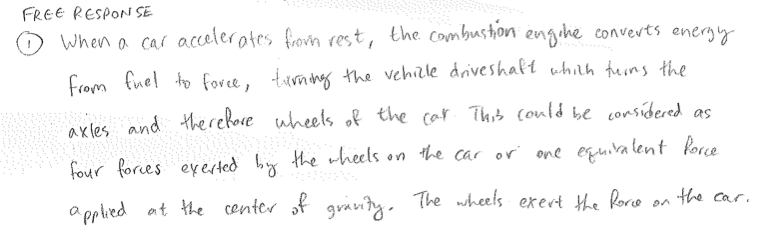 FREE RESPONSE
① When a car accelerates from rest, the combustion engine converts energy
from fuel to force, turning the vehicle driveshaft which turns the
axles and therefore wheels of the car. This could be considered as
four forces exerted by the wheels on the car or one equivalent force
applied at the center of gravity. The wheels exert the force on the car.